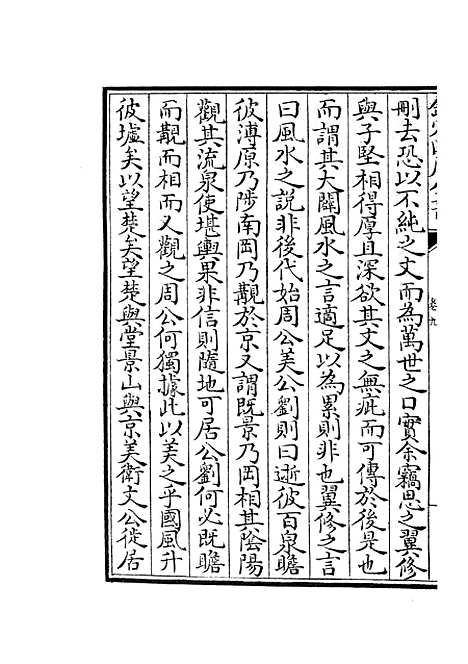 欽定四庫全書
卷九
刪去恐以不純之文而為萬世之口實余竊思之翼修
與子堅相得厚且深欲其文之無疵而可傳於後是也
而謂其大闢風水之言適足以為累則非也翼修之言
曰風水之説非後代始周公美公劉則曰逝彼百泉瞻
彼溥原乃陟南岡乃覯於京又謂既景乃岡相其陰陽
觀其流泉使堪輿果非信則隨地可居公劉何必既瞻
而覯而相而又觀之周公何獨據此以美之乎國風升
彼墟矣以望楚矣望楚與堂景山與京美衛文公徙居